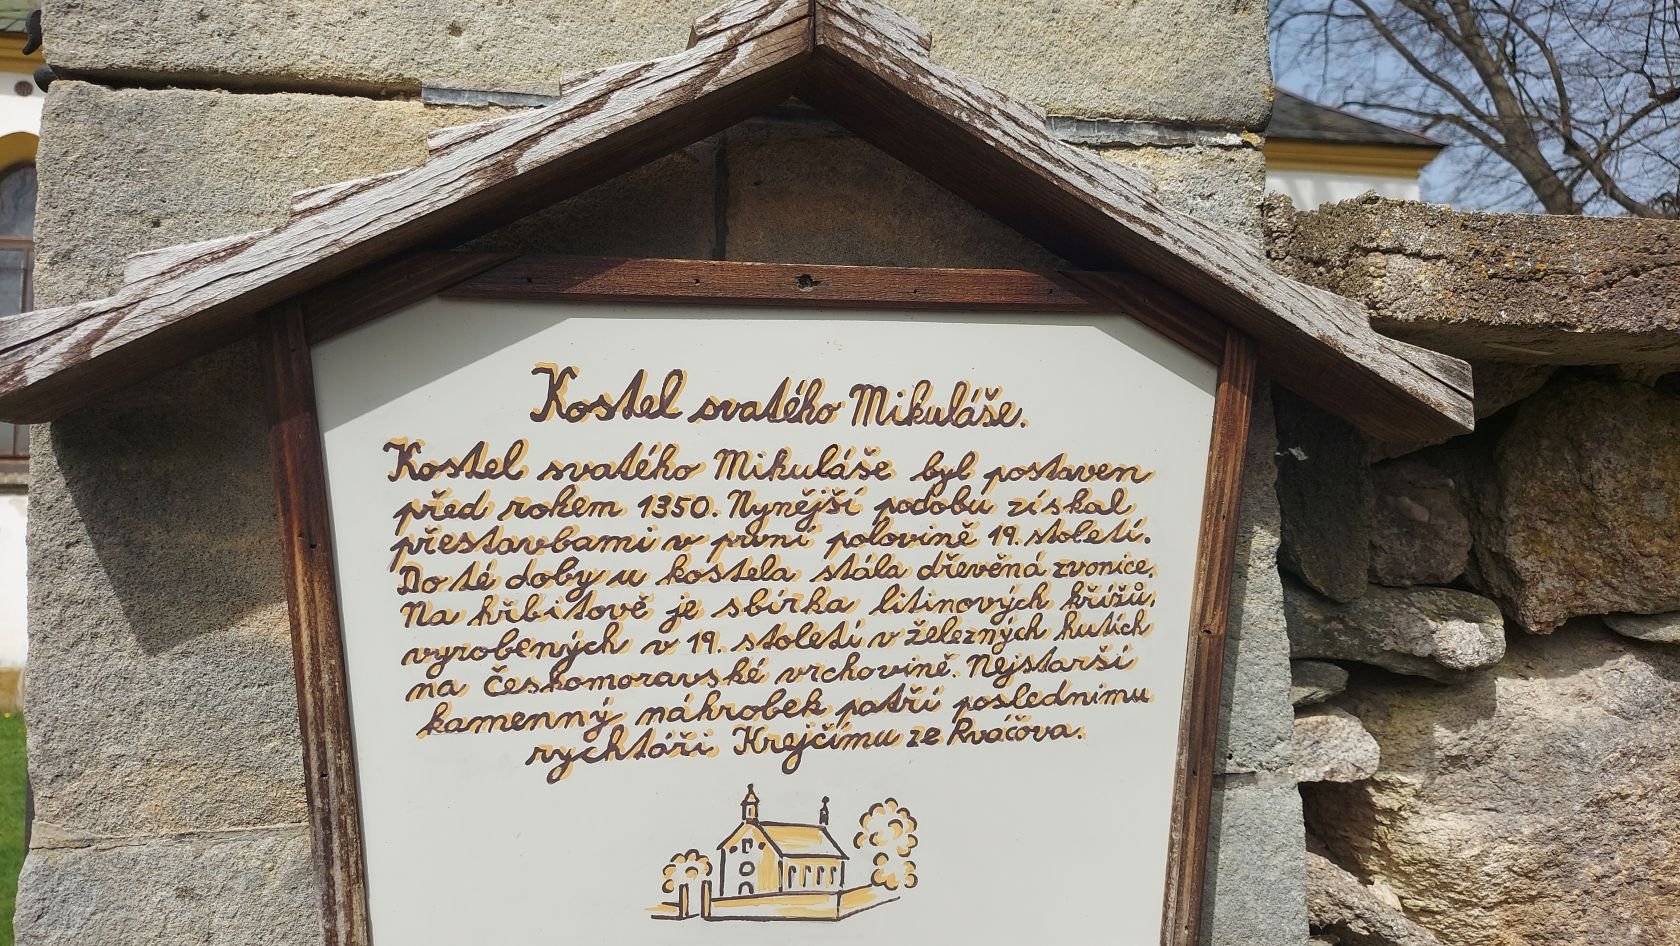 Kostel svatého Mikuláše.
Kostel svatého Mikuláše byl postaven
před rokem 1350. Nynější podobu získal
přestavbami v první polovině 19. století.
Do té doby u kostela stála dřevěná zvonice.
Na hřbitově je sbírka litinových křížů,
vyrobených v 19. století v železných hutích
na českomoravské vrchovině. Nejstarší
kamenný náhrobek patří poslednímu
rychtáři Krejčímu ze Rváčova.